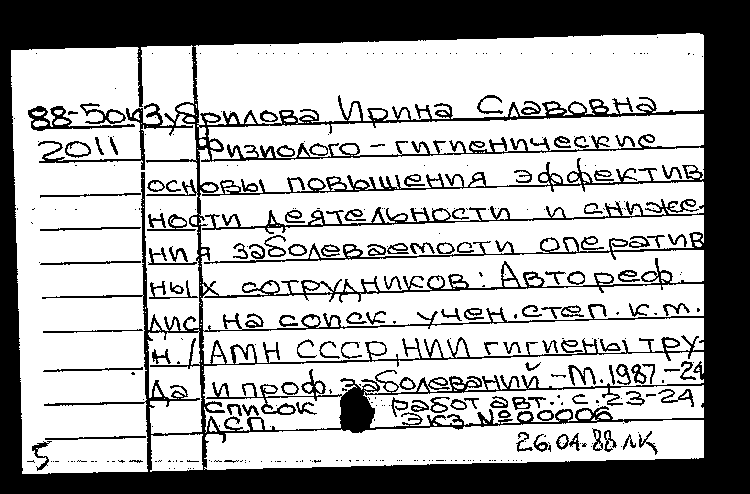 88-50к Зубрилова, Ирина Славовна.
2011 Физиолого-гигиенические
основы повышения эффектив
ности деятельности и сниже-
ния заболеваемости оператив
ных сотрудников: Автореф.
дис. на соиск. учен. степ. к.м.
н. / АМН СССР, НИИ гигиены тру-
да и проф. заболеваний. -М. 1987. -24
список работ авт.: с. 23-24.
ДСП. экз. №00006
26.04.88 ЛК
5